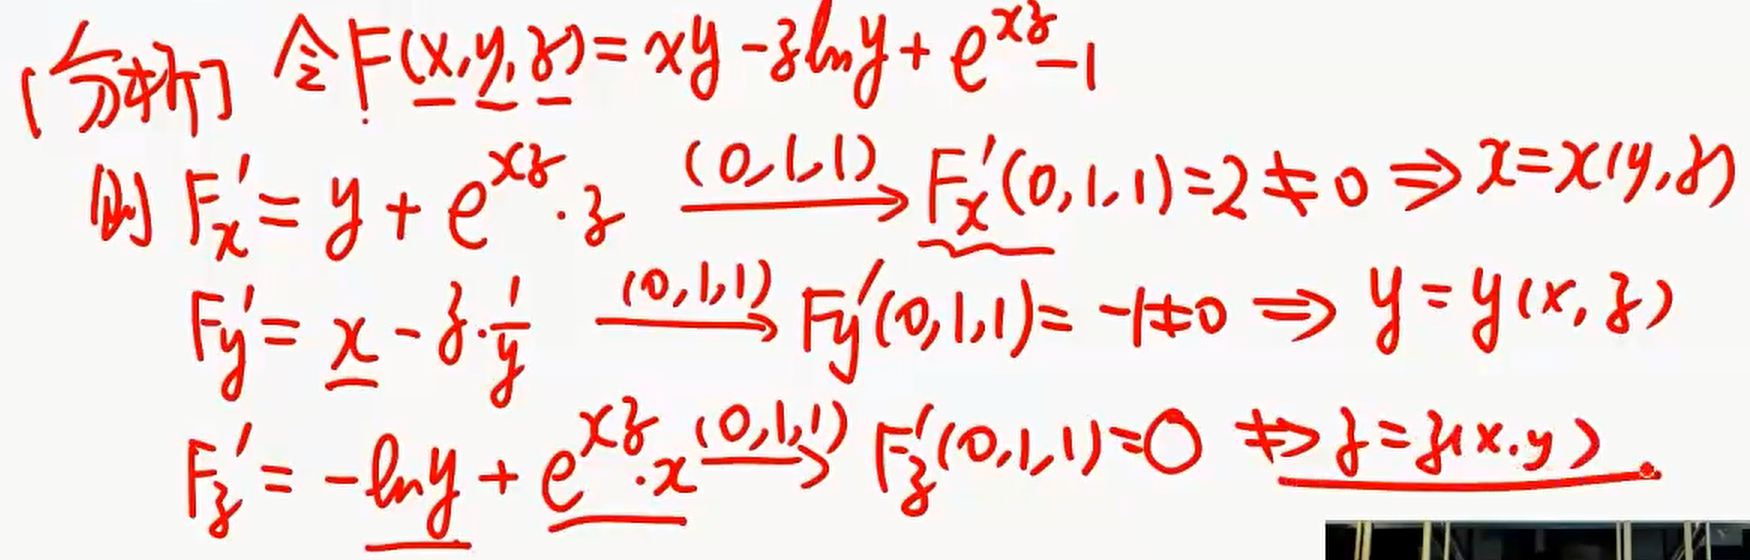 [分析] 令F(x,y,z)=xy-zlny+e^{xz}-1
则 F'_x=y+e^{xz}·z \xrightarrow{(0,1,1)} F'_x(0,1,1)=2≠0⇒x=x(y,z)
F'_y=x-z·\frac{1}{y} \xrightarrow{(0,1,1)} F'_y(0,1,1)=-1≠0⇒y=y(x,z)
F'_z=-lny+e^{xz}·x \xrightarrow{(0,1,1)} F'_z(0,1,1)=0⇏z=z(x.y)